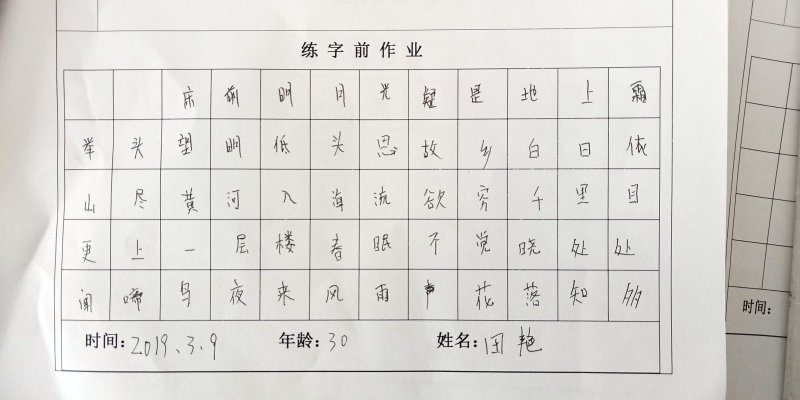 练字前作业
床前明月光疑是地上霜
举头望明低头思故乡白日依
山尽黄河入海流欲穷千里目
更上一层楼春眠不觉晓处处
闻啼鸟夜来风雨声花落知多
时间:2019.3.9 年龄:30 姓名:田艳
时间: